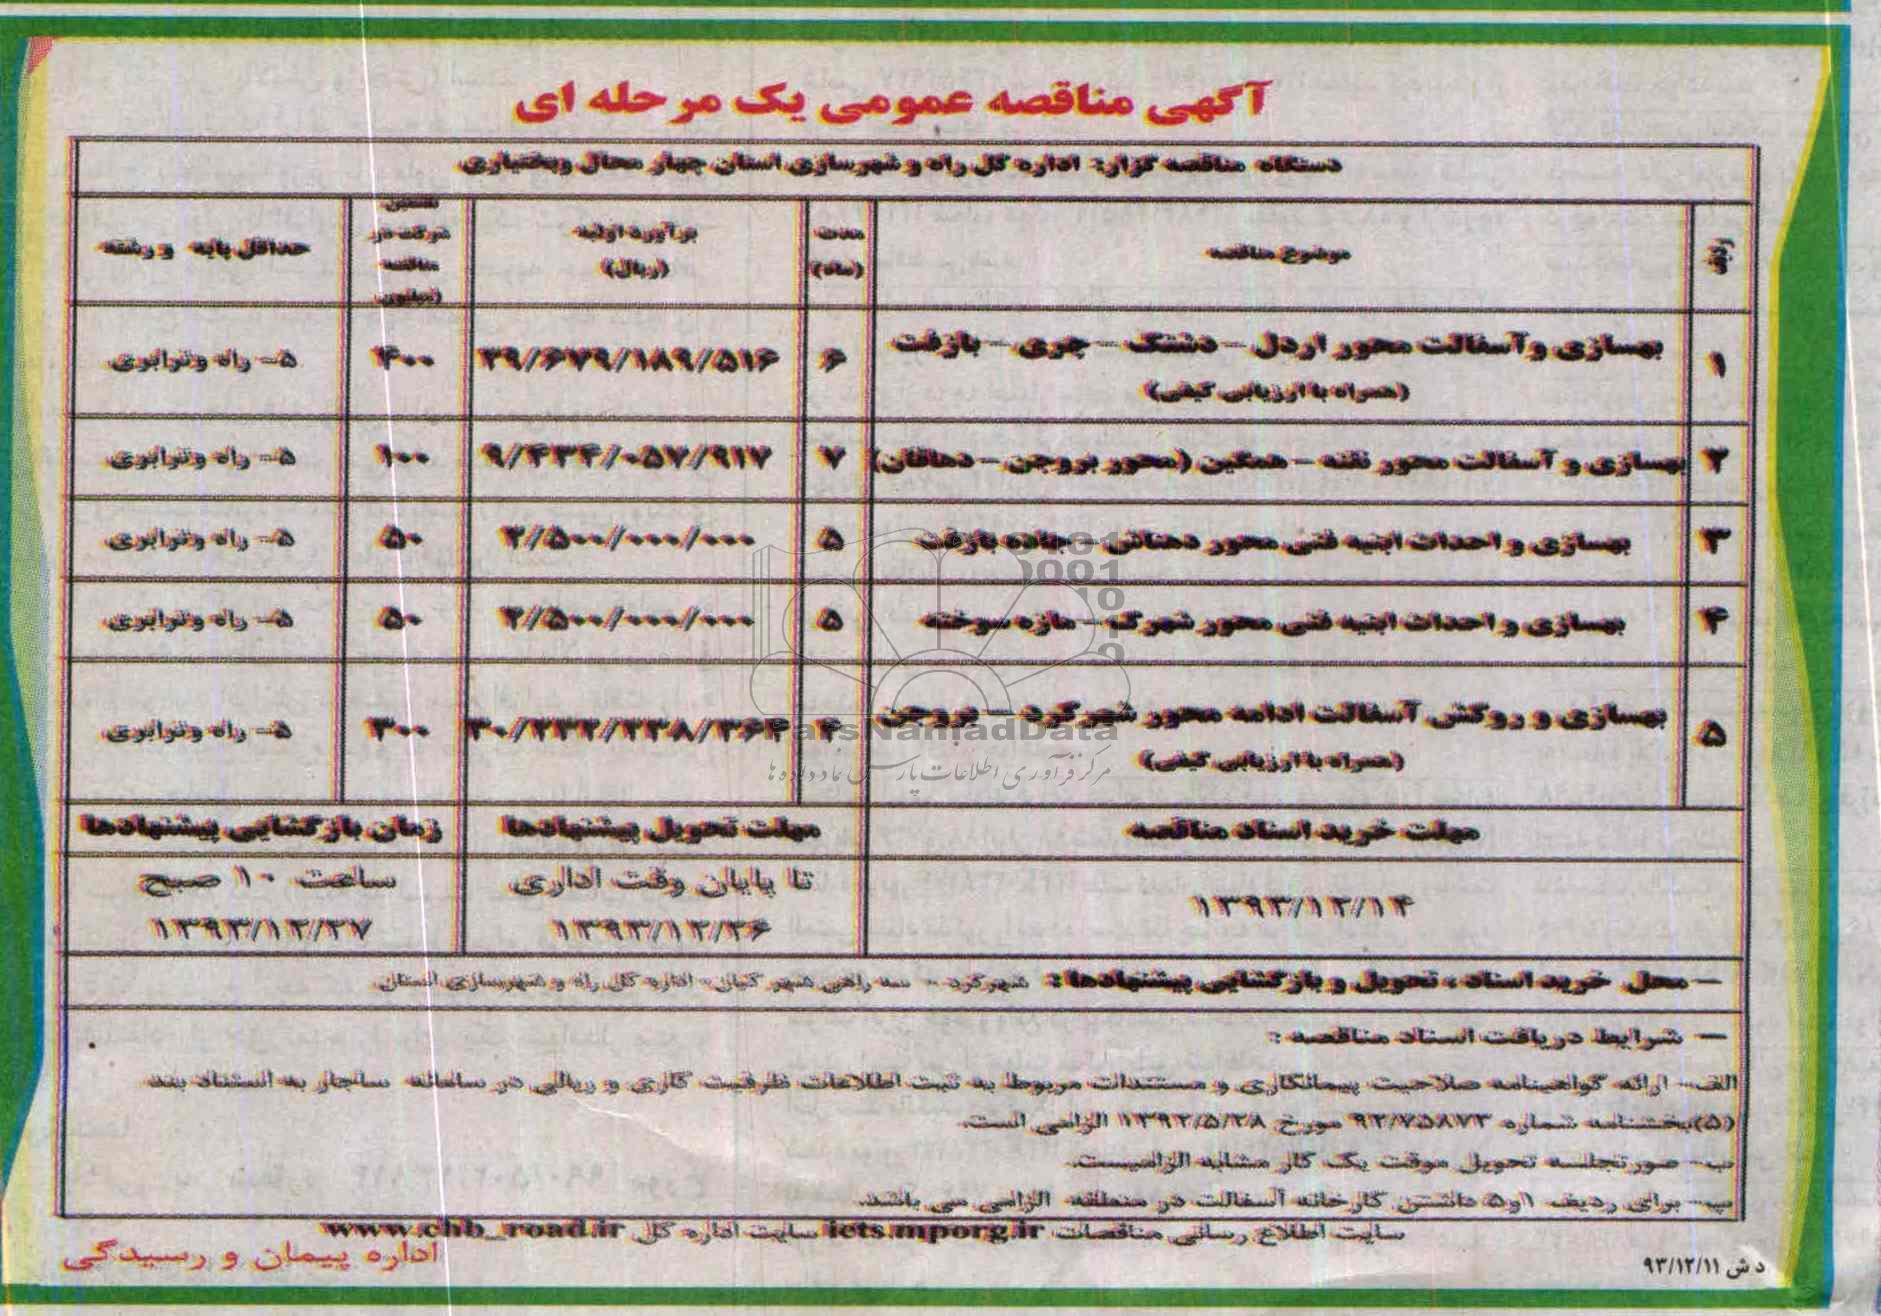 آگهی مناقصه عمومی یک مرحله ای
دستگاه مناقصه گزار: اداره کل راه و شهرسازی استان چهار محال وبختیاری
ردیف موضوع مناقصه مدت (ماه) برآورد اولیه (ریال) تضمین شرکت در مناقصه (میلیون حداقل پایه و رشته
۱ بهسازی وآسفالت محور اردل – دشتک – جری – بازفت (همراه با ارزیابی کیفی) ۶ ۳۹/۶۷۹/۱۸۹/۵۱۶ ۴۰۰ ۵- راه وترابری
۲ بهسازی و آسفالت محور نقنه – همگین (محور بروجن – دهاقان) ۷ ۹/۴۳۴/۰۵۷/۹۱۷ ۱۰۰ ۵- راه وترابری
۳ بهسازی و احداث ابنیه فنی محور دهناش – جاده بازفت ۵ ۲/۵۰۰/۰۰۰/۰۰۰ ۵۰ ۵- راه وترابری
۴ بهسازی و احداث ابنیه فنی محور شهرک – مازه سوخته ۵ ۲/۵۰۰/۰۰۰/۰۰۰ ۵۰ ۵- راه وترابری
۵ بهسازی و روکش آسفالت ادامه محور شهرکرد – بروجن (همراه با ارزیابی کیفی) ۴ ۳۰۰ ۵- راه وترابری
مهلت خرید اسناد مناقصه مهلت تحویل پیشنهادها زمان بازگشایی پیشنهادها
۱۳۹۳/۱۲/۱۴ تا پایان وقت اداری ۱۳۹۳/۱۲/۲۶ ساعت ۱۰ صبح ۱۳۹۳/۱۲/۲۷
– محل خرید اسناد ، تحویل و بازگشایی پیشنهادها : شهرکرد – سه راهی شهر کیان- اداره کل راه و شهرسازی استان
– شرایط دریافت اسناد مناقصه :
الف- ارائه گواهینامه صلاحیت پیمانکاری و مستندات مربوط به ثبت اطلاعات ظرفیت کاری و ریالی در سامانه ساجار به استناد بند
(۵)بخشنامه شماره ۹۲/۷۵۸۷۳ مورخ ۱۳۹۲/۵/۲۸ الزامی است.
ب- صورتجلسه تحویل موقت یک کار مشابه الزامیست.
پ- برای ردیف ۱و۵ داشتن کارخانه آسفالت در منطقه الزامی می باشد.
سایت اطلاع رسانی مناقصات iets.mporg.ir سایت اداره کل www.chb_road.ir
اداره پیمان و رسیدگی
د ش ۹۳/۱۲/۱۱
ParsNamadData
مرکز فرآوری اطلاعات پارس نماد داده ها